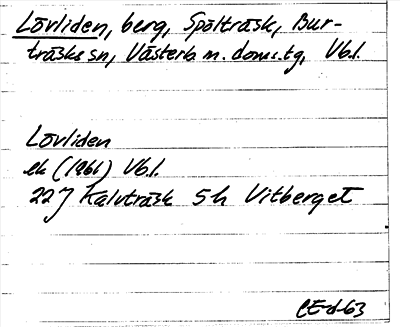 Lövliden, berg, Spölträsk, Bur-
träsks sn, Västerb. m. doms.tg, Vb.l.
Lövliden
ek (1961) Vb.l.
22 J Kalvträsk 5h Vitberget
CE-d-63